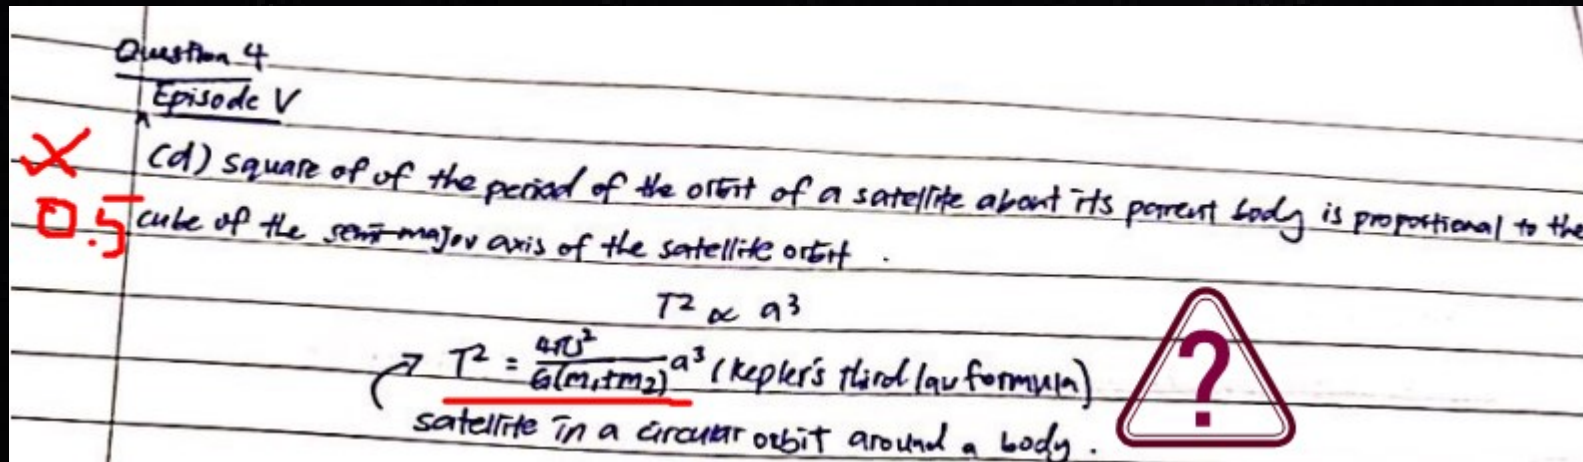 Question 4
Episode V
(d) square of of the period of the orbit of a satellite about its parent body is proportional to the
0.5 cube of the semi-major axis of the satellite orbit.
T² ∝ a³
T² = 4π²/G(m₁+m₂) a³ (Kepler's third law formula)
satellite in a circular orbit around a body.
?